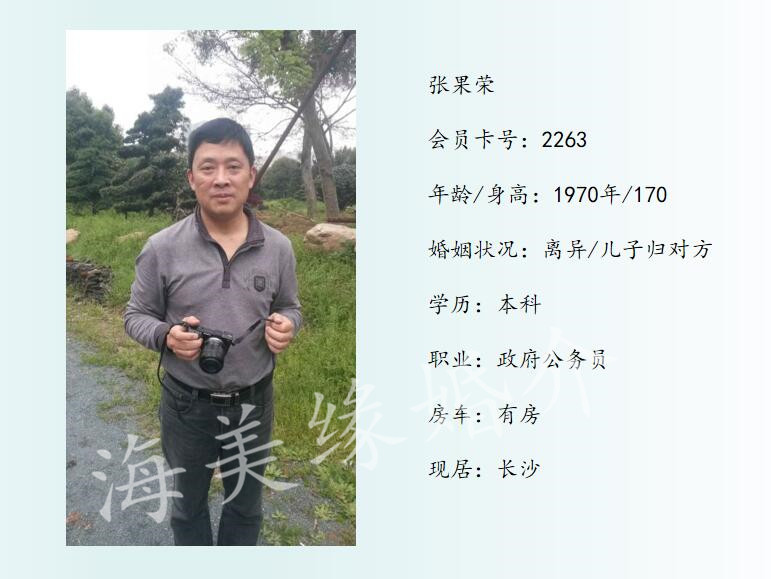 张果荣
会员卡号：2263
年龄/身高：1970年/170
婚姻状况：离异/儿子归对方
学历：本科
职业：政府公务员
房车：有房
现居：长沙
海美缘婚介